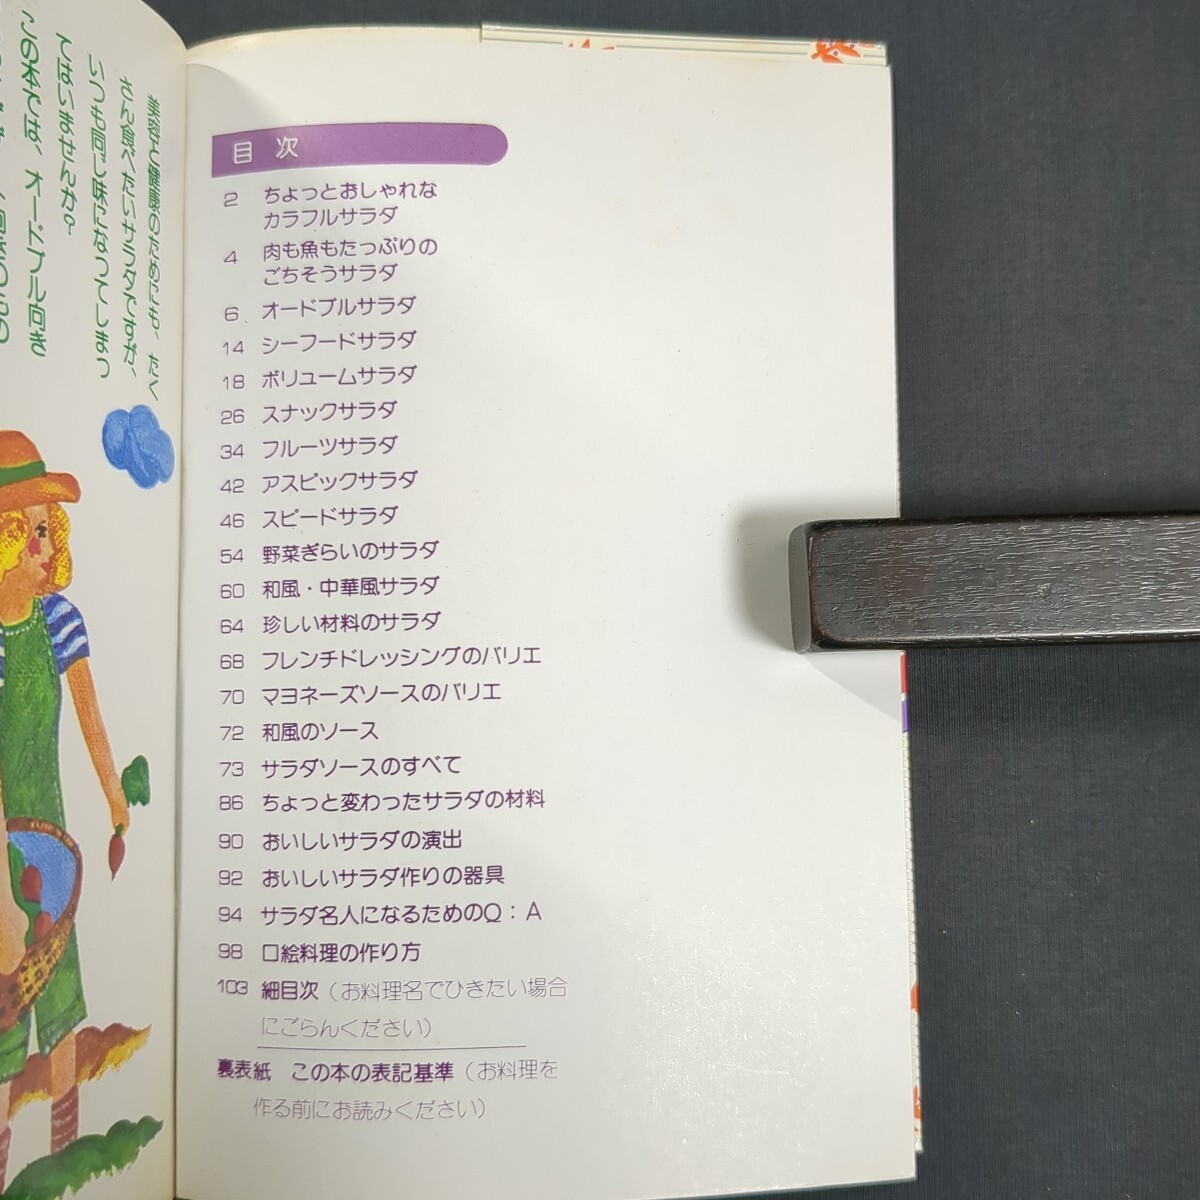 美容と健康のためにも、たく
さん食べたいサラダですが、
いつも同じ味になってしまっ
てはいませんか？
この本では、オードブル向き
目次
2 ちょっとおしゃれな
カラフルサラダ
4 肉も魚もたっぷりの
ごちそうサラダ
6 オードブルサラダ
14 シーフードサラダ
18 ボリュームサラダ
26 スナックサラダ
34 フルーツサラダ
42 アスピックサラダ
46 スピードサラダ
54 野菜ぎらいのサラダ
60 和風・中華風サラダ
64 珍しい材料のサラダ
68 フレンチドレッシングのバリエ
70 マヨネーズソースのバリエ
72 和風のソース
73 サラダソースのすべて
86 ちょっと変わったサラダの材料
90 おいしいサラダの演出
92 おいしいサラダ作りの器具
94 サラダ名人になるためのQ：A
98 口絵料理の作り方
103 細目次（お料理名でひきたい場合
にごらんください）
裏表紙 この本の表記基準（お料理を
作る前にお読みください）